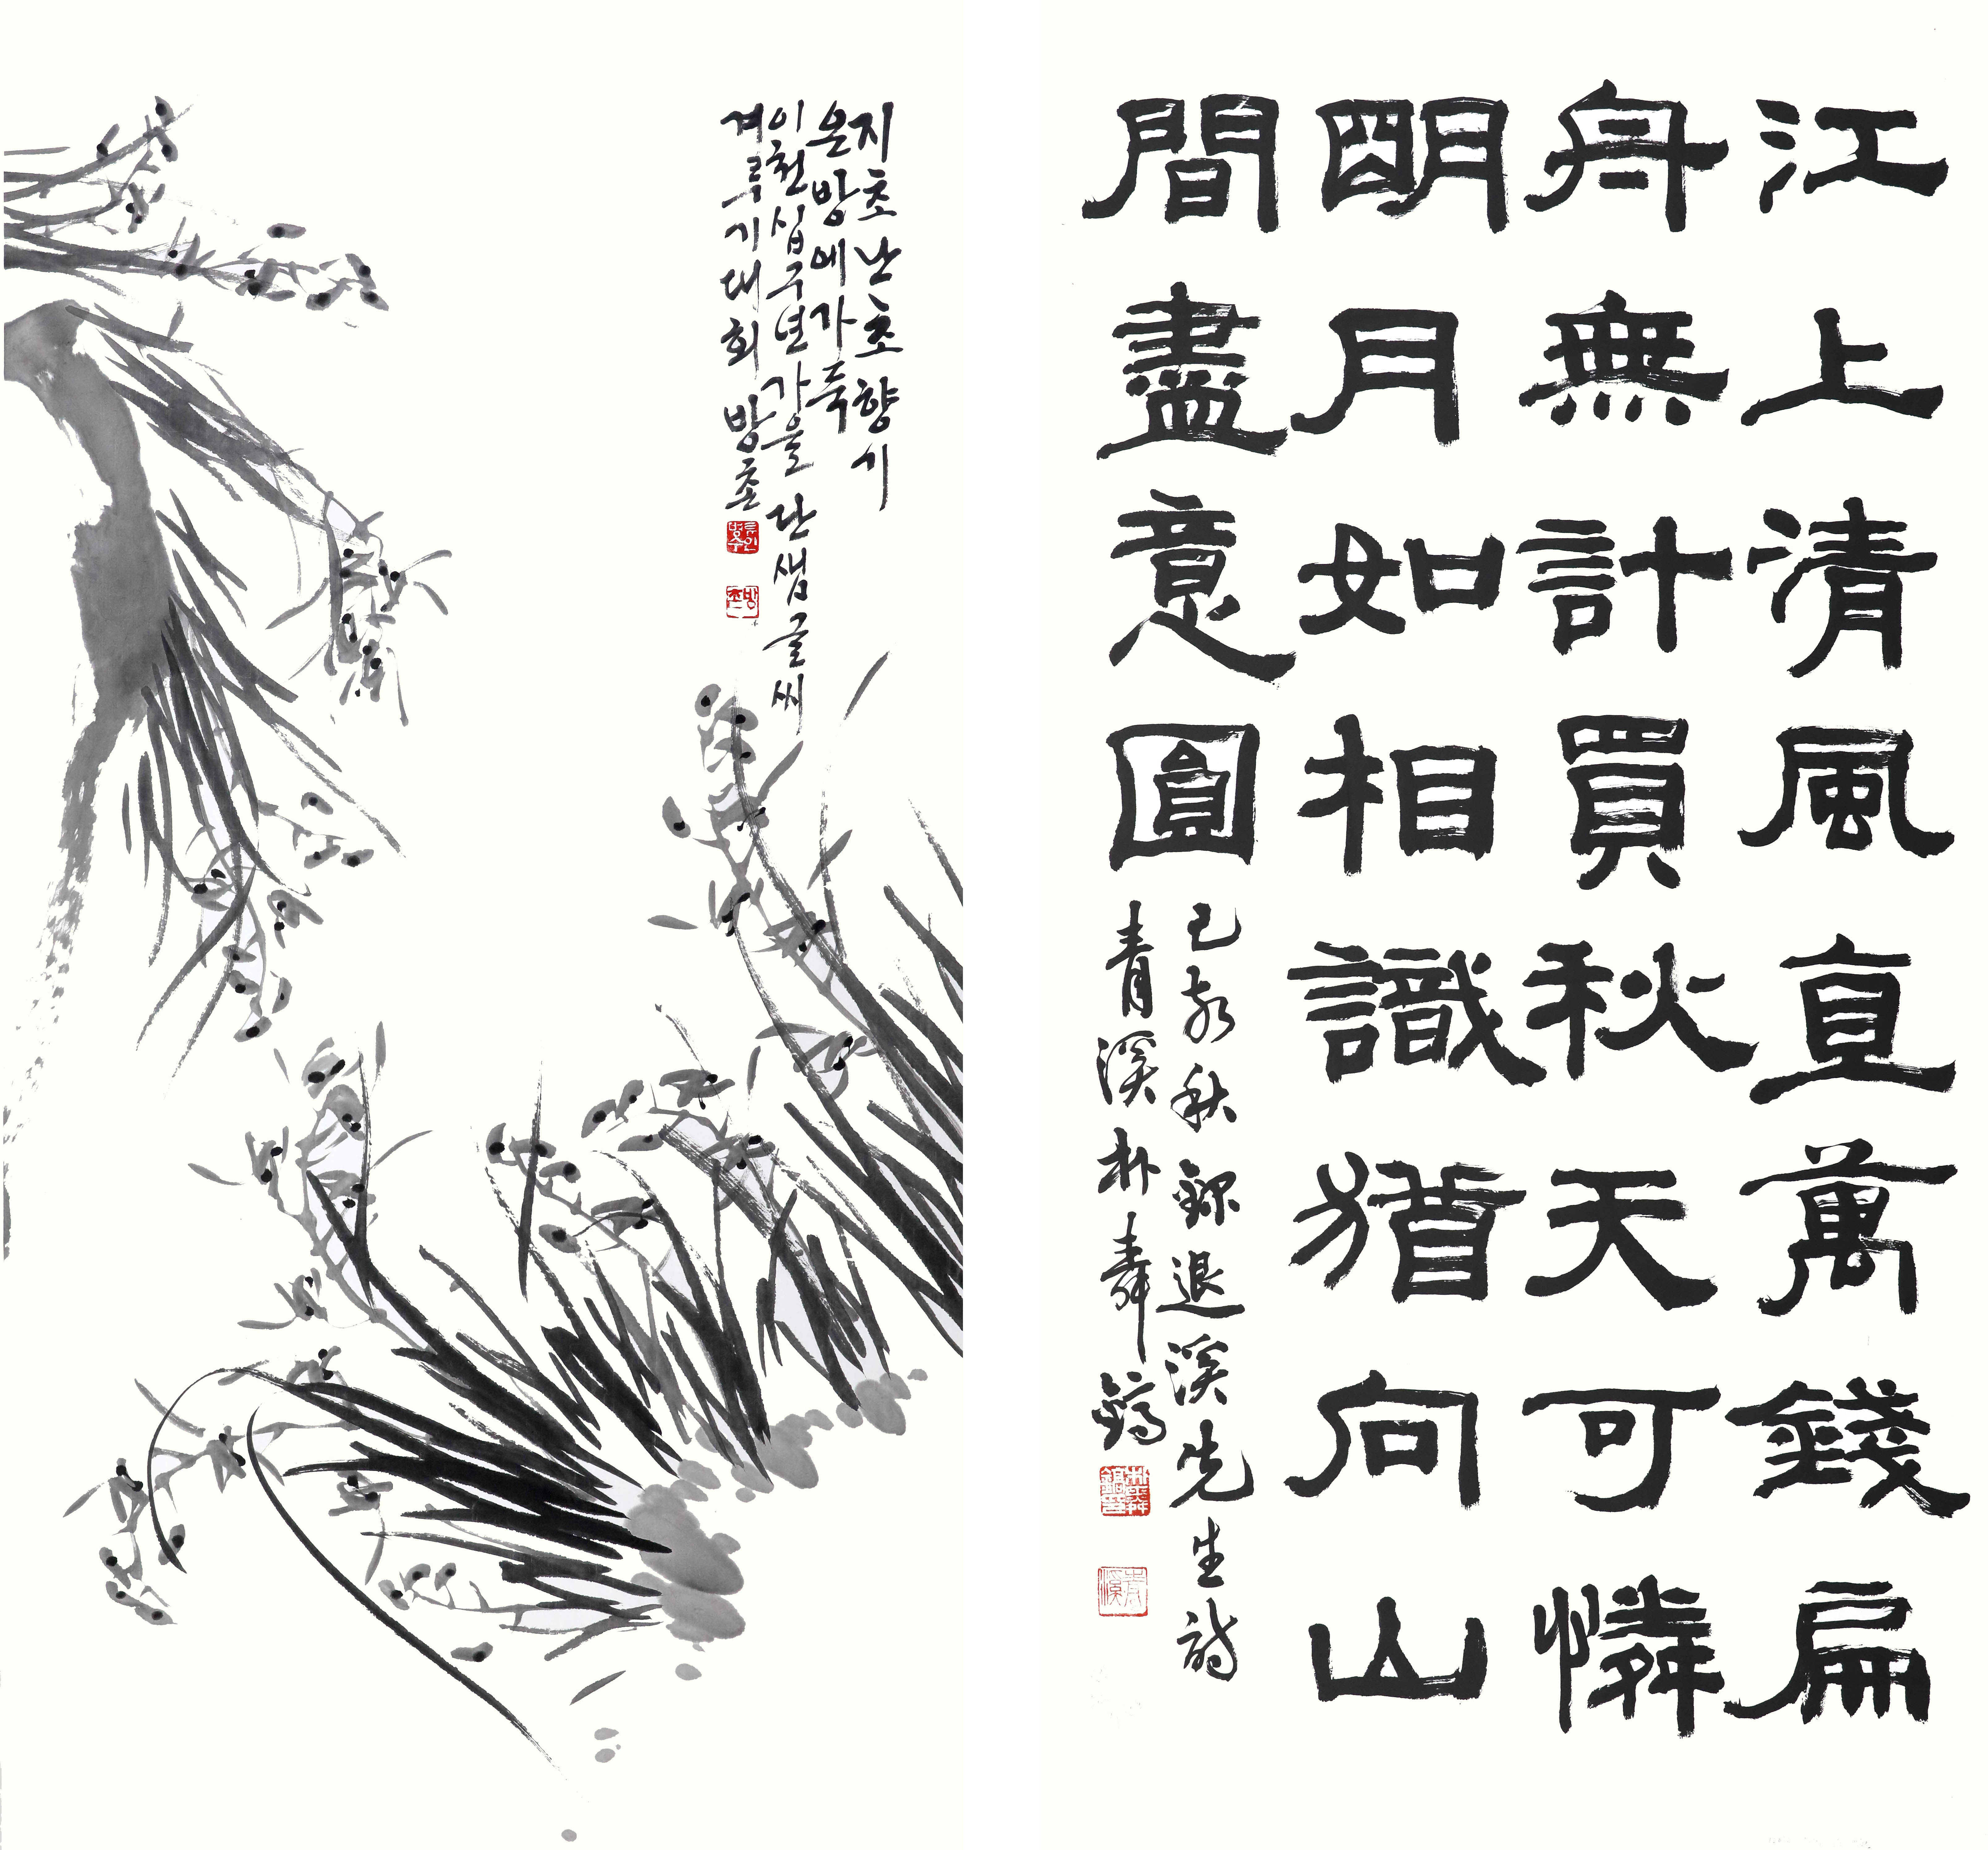 지초난초향기
온방에가득
이천십구년가을 단샘글씨
겨루기대회 방촌
방촌
江上清風直萬錢扁
舟無計買秋天可憐
明月如相識猶向山
間盡意圓
己亥秋錄退溪先生詩
青溪朴舜
青溪